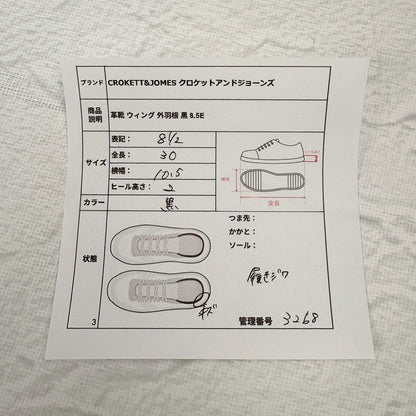 ブランド CROKETT&JOMES クロケットアンドジョーンズ
商品説明 革靴 ウィング 外羽根 黒 8.5E
サイズ
表記： 8 1/2
全長： 30
横幅： 10.5
ヒール高さ： 3
ヒール高さ
横幅
全長
カラー 黒
状態
つま先：
かかと：
ソール：
履きジワ
キズ
3
管理番号 3268